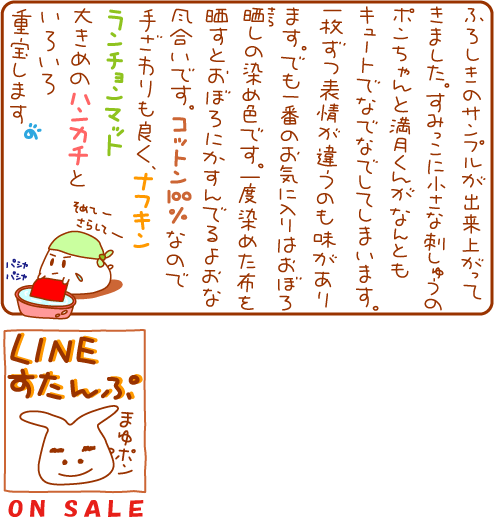 ふろしきのサンプルが出来上がって
きました。すみっこに小さな刺しゅうの
ポンちゃんと満月くんがなんとも
キュートでなでなでしてしまいます。
一枚ずつ表情が違うのも味があり
ます。でも一番のお気に入りはおぼろ
晒しの染め色です。一度染めた布を
さら
晒すとおぼろにかすんでるよおな
風合いです。コットン100%なので
手ざわりも良く、ナフキン
ランチョンマット
大きめのハンカチと
いろいろ
重宝します
そめてー
さらしてー
パシャ
パシャ
LINE
すたんぷ
まゆポン
ON SALE